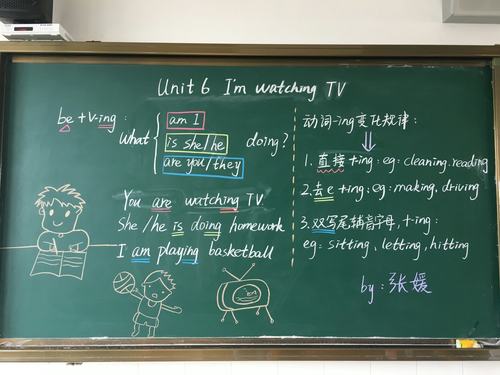 Unit 6 I'm watching TV
be + v-ing :
what
am I
is she/he
are you/they
doing?
You are watching TV
She/he is doing homework
I am playing basketball
动词-ing变化规律:
1. 直接+ing: eg: cleaning, reading
2. 去e+ing: eg: making, driving
3. 双写尾辅音字母, +ing:
eg: sitting, letting, hitting
by: 张媛